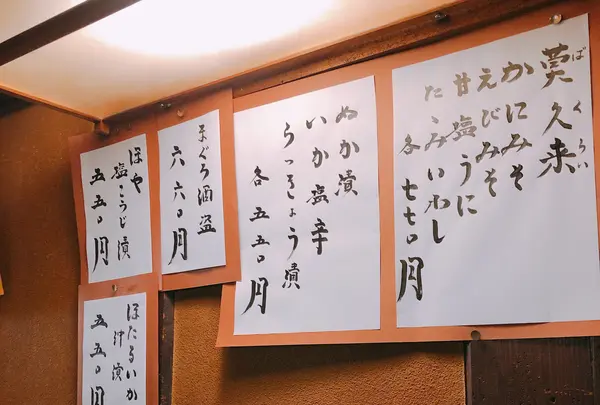 莫久来
ばくらい
かにみそ
えびみそ
甘塩うに
たゝみいわし
各 七七〇円
ぬか漬
いか塩辛
らっきょう漬
各 五五〇円
まぐろ酒盗
六六〇円
ほや
塩こうじ漬
五五〇円
ほたるいか
沖漬
五五〇円